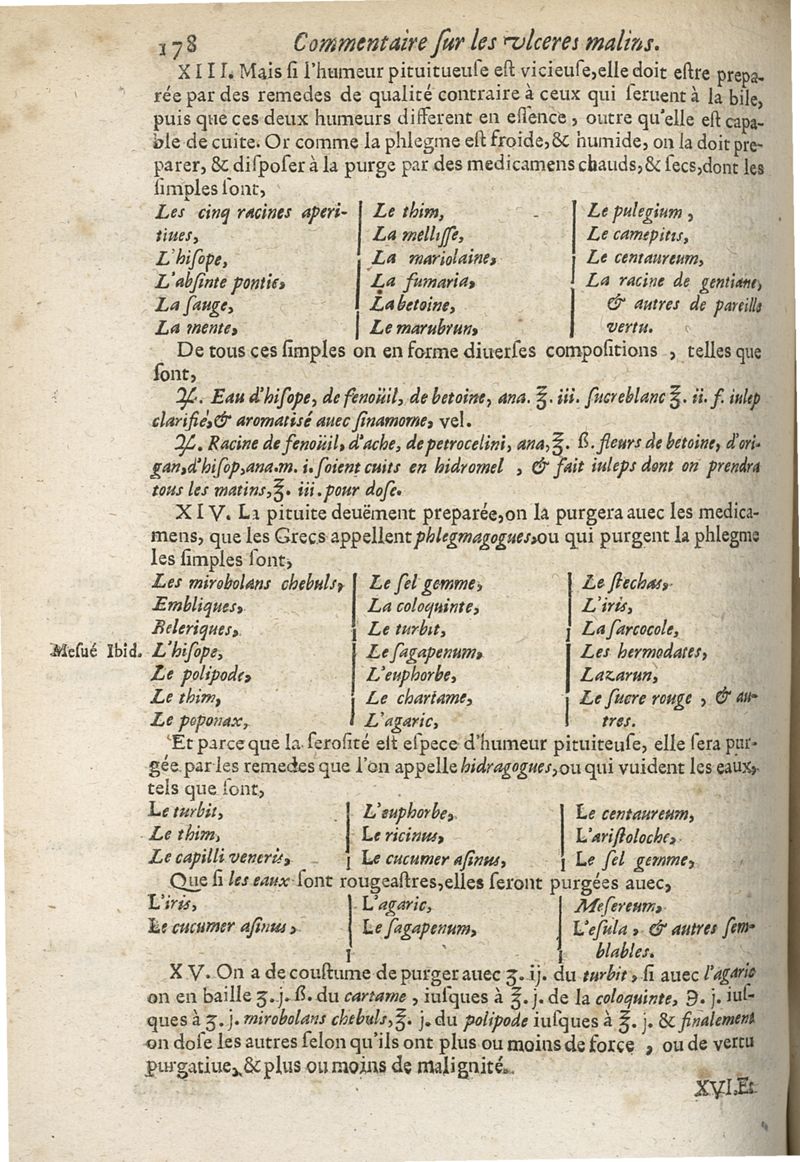 178 Commentaire ſur les vlceres malins.
XIII. Mais ſi l'humeur pituitueuſe eſt vicieuſe, elle doit eſtre prepa-
rée par des remedes de qualité contraire à ceux qui ſeruent à la bile,
puis que ces deux humeurs different en eſſence, outre qu'elle eſt capa-
ble de cuite. Or comme la phlegme eſt froide, & humide, on la doit pre-
parer, & diſpoſer à la purge par des medicamens chauds, & ſecs, dont les
ſimples ſont,
Les cinq racines aperi-
tiues,
L'hiſope,
L'abſinte pontic,
La ſauge,
La mente,
Le thim,
La melliſſe,
La mariolaine,
La fumaria,
La betoine,
Le marubrun,
Le pulegium,
Le camepitis,
Le centaureum,
La racine de gentiane,
& autres de pareille
vertu.
De tous ces ſimples on en forme diuerſes compoſitions, telles que
ſont,
℞. Eau d'hiſope, de fenoüil, de betoine, ana. ℥. iii. ſucre blanc ℥. ii. f. iulep
clarifié, & aromatisé auec ſinamome, vel.
℞. Racine de fenoüil, d'ache, de petrocelini, ana, ℥. ß. fleurs de betoine, d'ori-
gan, d'hiſop, ana. m. i. ſoient cuits en hidromel, & fait iuleps dont on prendra
tous les matins, ℥. iii. pour doſe.
XIV. La pituite deuëment preparée, on la purgera auec les medica-
mens, que les Grecs appellent phlegmagogues, ou qui purgent la phlegme
les ſimples ſont,
Les mirobolans chebuls,
Embliques,
Beleriques,
Meſué Ibid. L'hiſope,
Le polipode,
Le thim,
Le poponax,
Le ſel gemme,
La coloquinte,
Le turbit,
Le ſagapenum,
L'euphorbe,
Le chartame,
L'agaric,
Le ſtechas,
L'iris,
La ſarcocole,
Les hermodates,
Lazarun,
Le ſucre rouge, & au-
tres.
Et parce que la ſeroſité eſt eſpece d'humeur pituiteuſe, elle ſera pur-
gée par les remedes que l'on appelle hidragogues, ou qui vuident les eaux,
tels que ſont,
Le turbit,
Le thim,
Le capilli veneris,
L'euphorbe,
Le ricinus,
Le cucumer aſinus,
Le centaureum,
L'ariſtoloche,
Le ſel gemme,
Que ſi les eaux ſont rougeaſtres, elles ſeront purgées auec,
L'iris,
Le cucumer aſinus,
L'agaric,
Le ſagapenum,
Meſereum,
L'eſula, & autres ſem-
blables.
XV. On a de couſtume de purger auec ʒ. ij. du turbit, ſi auec l'agaric
on en baille ʒ. j. ß. du cartame, iuſques à ℥. j. de la coloquinte, ℈. j. iuſ-
ques à ʒ. j. mirobolans chebuls, ℥. j. du polipode iuſques à ℥. j. & finalement
on doſe les autres ſelon qu'ils ont plus ou moins de force, ou de vertu
purgatiue, & plus ou moins de malignité.
XVI. Et